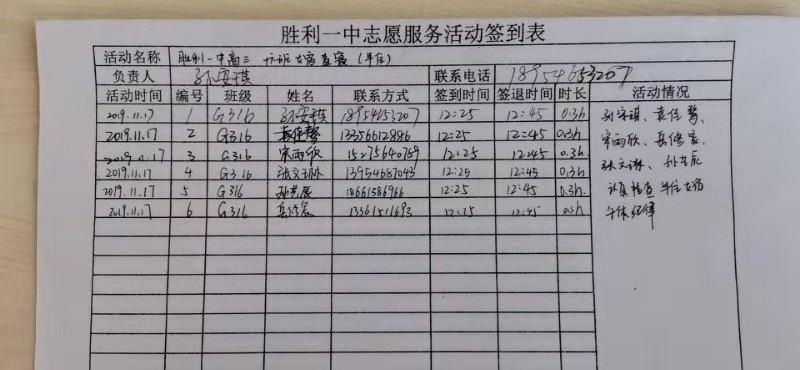 胜利一中志愿服务活动签到表
活动名称 胜利一中高三 十六班女宿查寝（午休）
负责人 孙安琪 联系电话 18954653207
活动时间 编号 班级 姓名 联系方式 签到时间 签退时间 时长 活动情况
2019.11.17 1 G316 孙安琪 18954653207 12:25 12:45 0.3h
2019.11.17 2 G316 13356612886 12:25 12:45 0.3h
2019.11.17 3 G316 宋雨欣 15275640759 12:25 12:45 0.3h
2019.11.17 4 G316 张文琳 13954687043 12:25 12:45 0.3h
2019.11.17 5 G316 18661586966 12:25 12:45 0.3h
2019.11.17 6 G316 13361511693 12:25 12:45 0.3h
宋雨欣、
张文琳、
认真检查 女宿
午休纪律